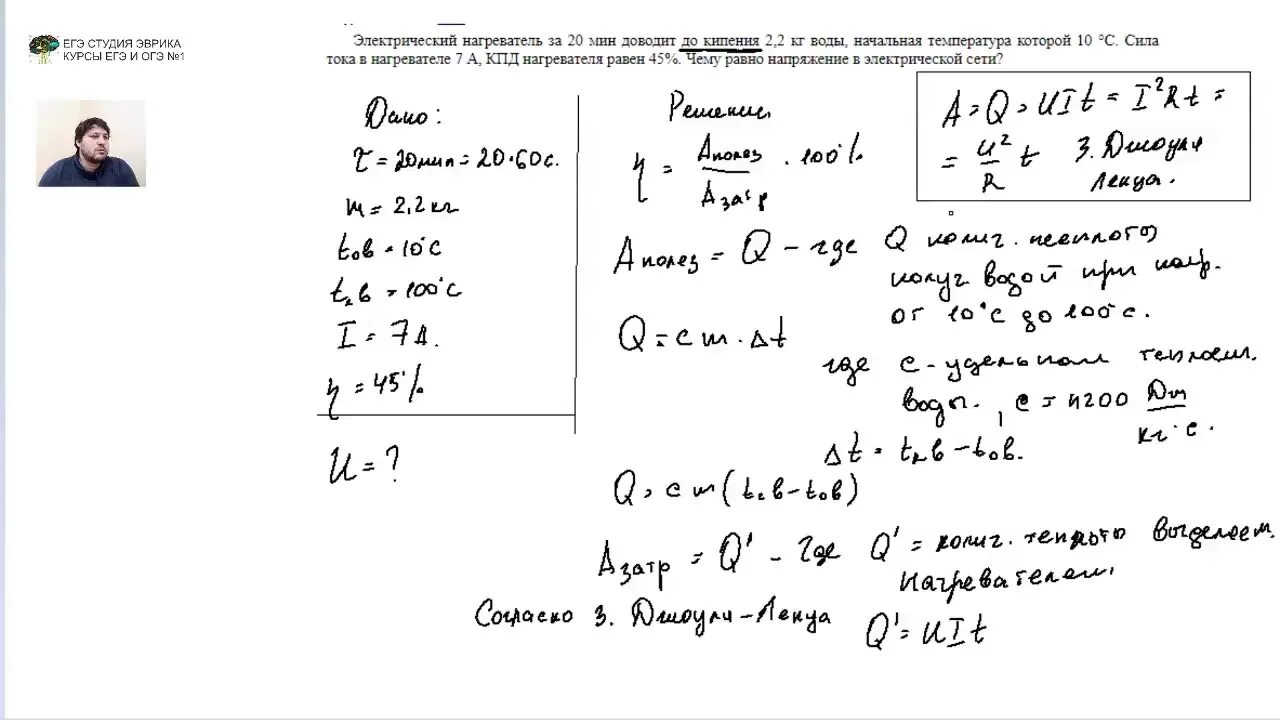 ЕГЭ СТУДИЯ ЭВРИКА
КУРСЫ ЕГЭ И ОГЭ №1
Электрический нагреватель за 20 мин доводит до кипения 2,2 кг воды, начальная температура которой 10 °С. Сила
тока в нагревателе 7 А, КПД нагревателя равен 45%. Чему равно напряжение в электрической сети?
Дано:
τ = 20мин = 20·60с.
m = 2,2 кг
t₀в = 10°C
t₂в = 100°C
I = 7А.
η = 45%
U = ?
Решение
η = Aполез / Aзатр · 100%
A = Q = UIt = I²Rt =
= U²/R t З. Джоуля
Ленца.
Aполез = Q – где Q колич. теплоты
получ водой при нагр.
от 10°C до 100°C.
Q = cm·Δt
где c - удельная теплоем.
воды, c = 4200 Дж / кг·°C.
Δt = t₂в – t₀в.
Q = cm(t₂в – t₀в)
Aзатр = Q' – где Q' = колич. теплоты выделяем.
нагревателем.
Согласно З. Джоуля-Ленца Q' = UIt